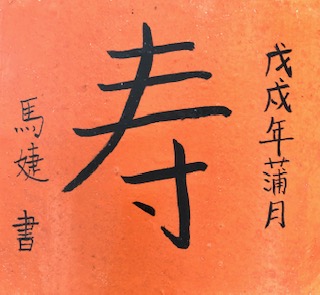 戊戌年蒲月
寿
馬婕 書